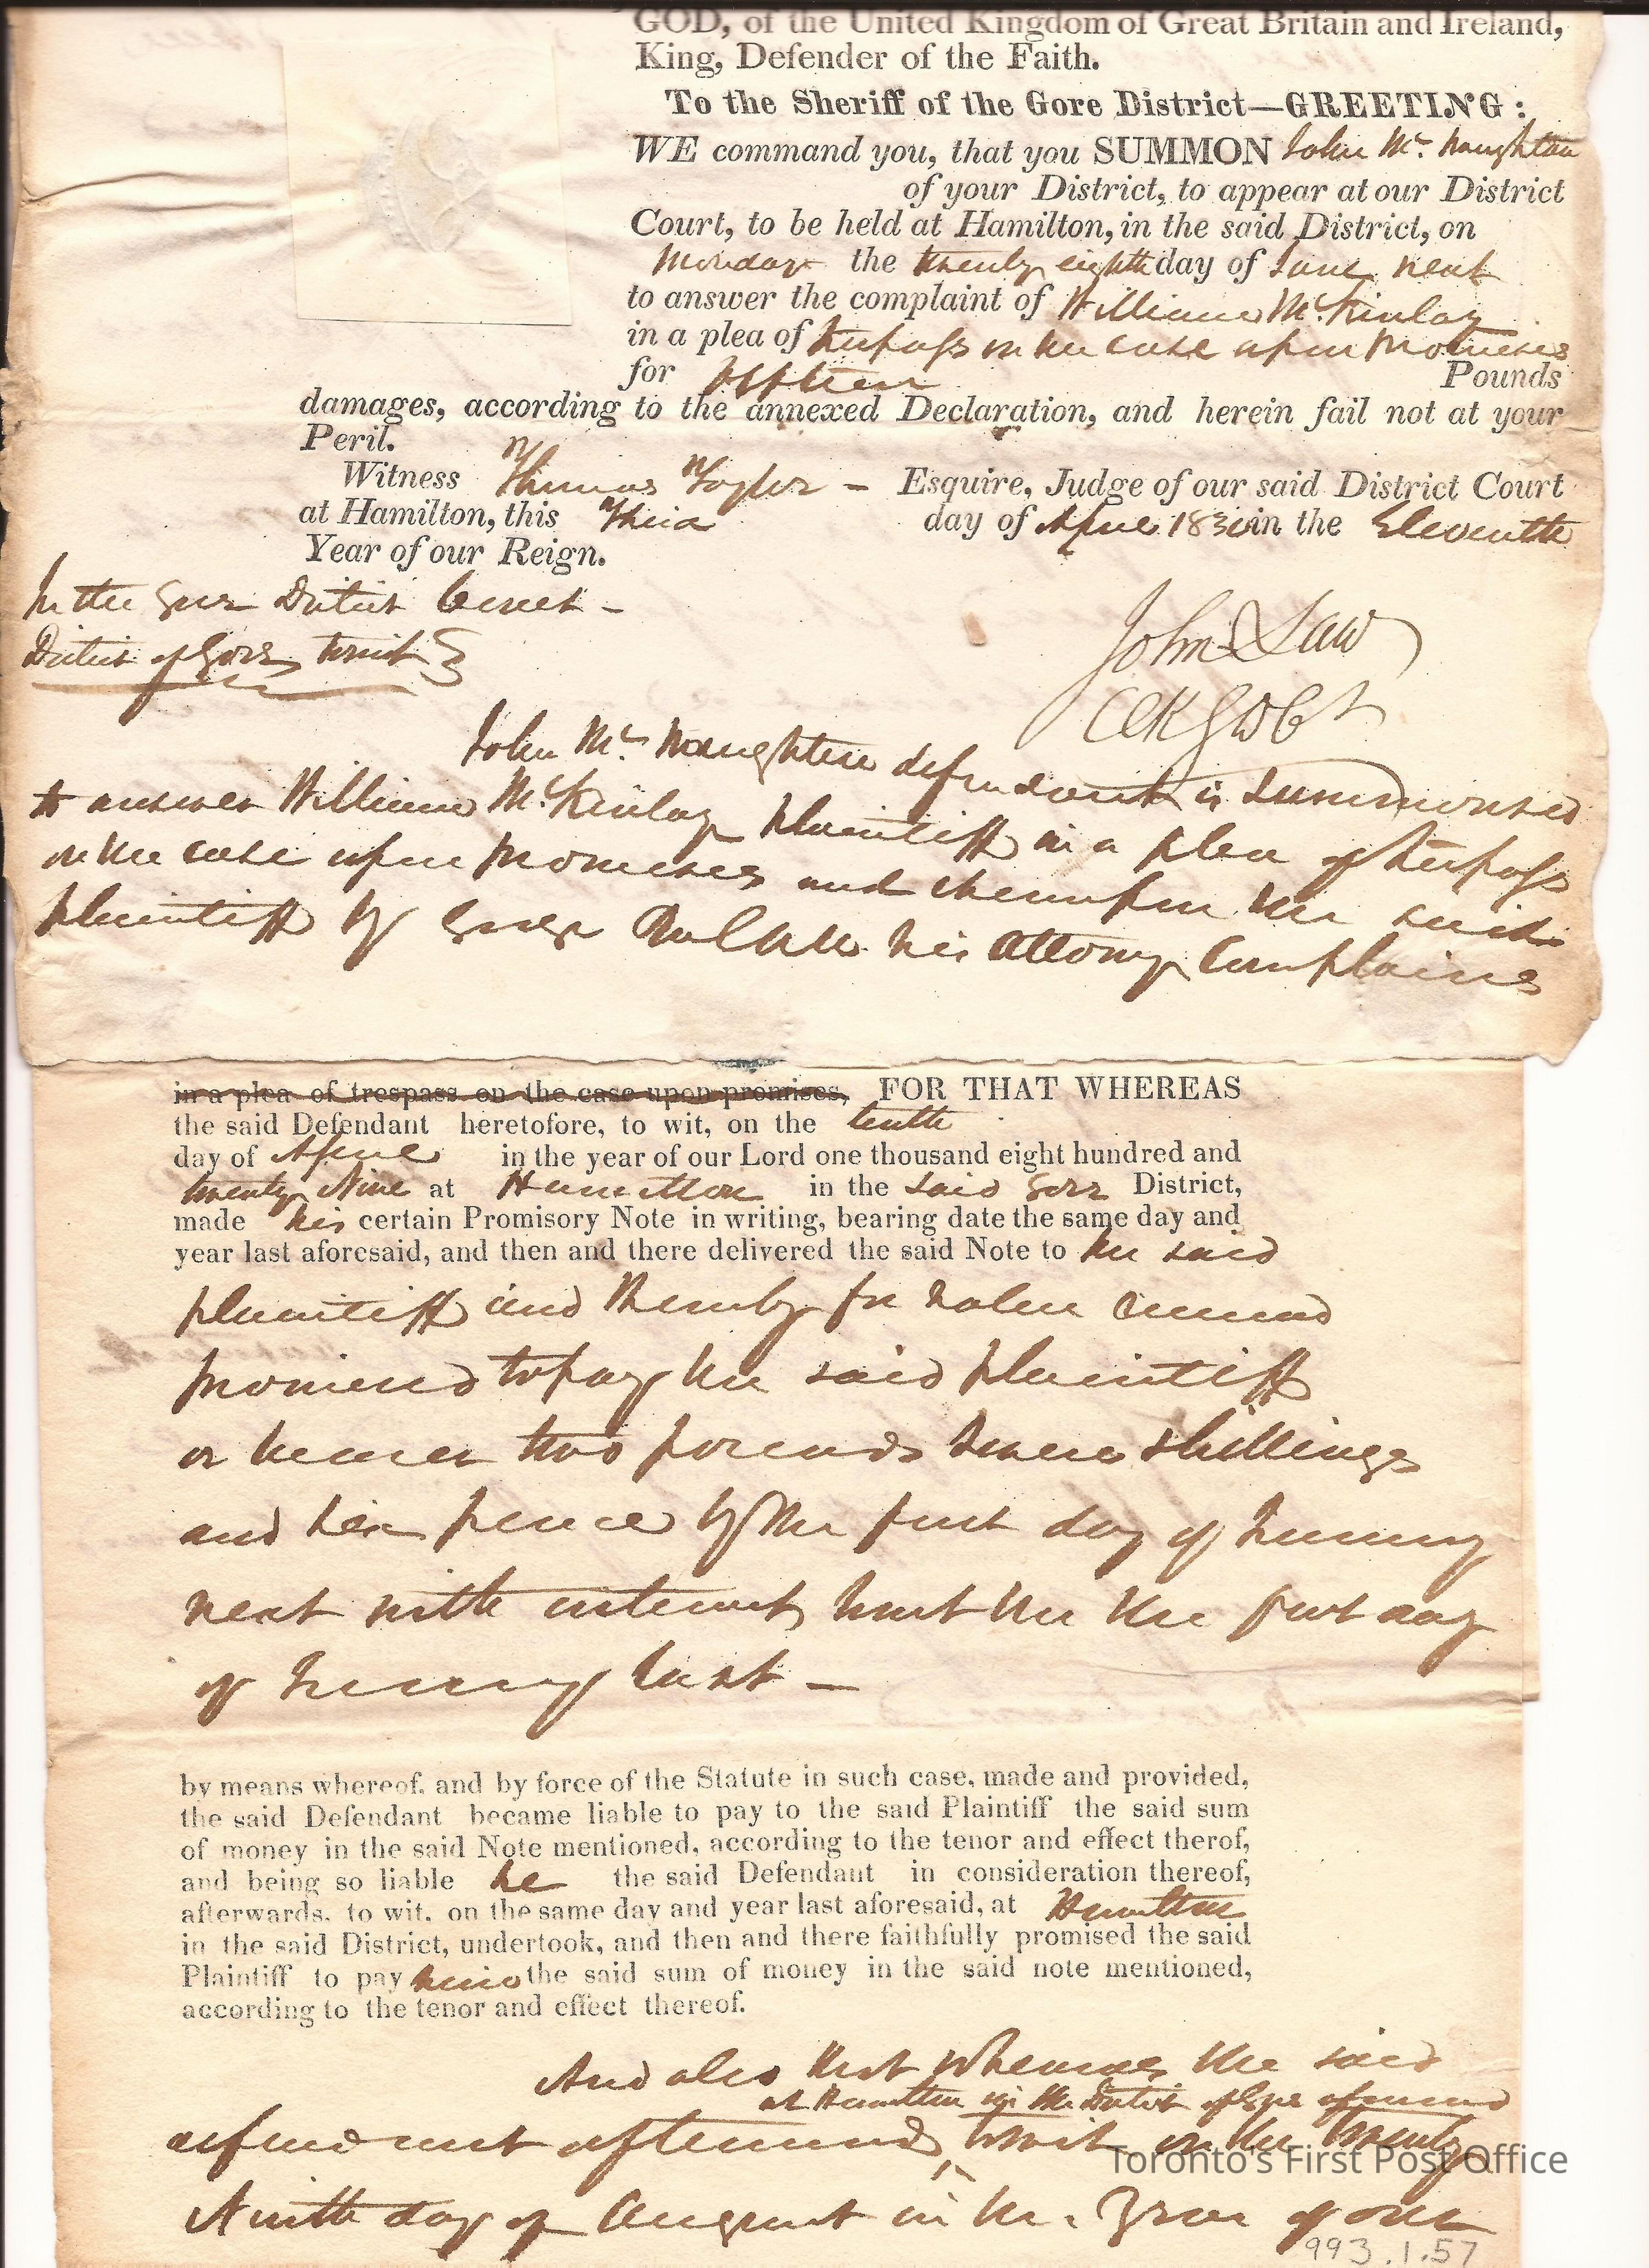 GOD, of the United Kingdom of Great Britain and Ireland,
King, Defender of the Faith.
To the Sheriff of the Gore District—GREETING:
WE command you, that you SUMMON John Mc. Naughton
of your District, to appear at our District
Court, to be held at Hamilton, in the said District, on
Monday the twenty eighth day of June next
to answer the complaint of William McKinlay
in a plea of trespass on the case upon promises
for fifteen Pounds
damages, according to the annexed Declaration, and herein fail not at your
Peril.
Witness Thomas Taylor – Esquire, Judge of our said District Court
at Hamilton, this Third day of April 1830 in the Eleventh
Year of our Reign.
In the Gore District Court –
District of Gore towit
John Law
Clk GDCt
John Mc. Naughton defendant is summonsed
to answer William McKinlay plaintiff in a plea of trespass
on the case upon promises and thereupon the said
plaintiff by George his attorney Complains
in a plea of trespass on the case upon promises, FOR THAT WHEREAS
the said Defendant heretofore, to wit, on the tenth
day of April in the year of our Lord one thousand eight hundred and
twenty Nine at Hamilton in the said Gore District,
made his certain Promisory Note in writing, bearing date the same day and
year last aforesaid, and then and there delivered the said Note to the said
plaintiff and thereby for value
promised to pay the said plaintiff
or bearer two pounds seven shillings
and six pence by the first day of January
next with interest the first day
of January last –
by means whereof, and by force of the Statute in such case, made and provided,
the said Defendant became liable to pay to the said Plaintiff the said sum
of money in the said Note mentioned, according to the tenor and effect therof,
and being so liable he the said Defendant in consideration thereof,
afterwards, to wit, on the same day and year last aforesaid, at Hamilton
in the said District, undertook, and then and there faithfully promised the said
Plaintiff to pay him the said sum of money in the said note mentioned,
according to the tenor and effect thereof.
And also that whereas the said
at Hamilton in the District of Gore aforesaid
defendant afterwards towit on the twenty
Ninth day of August in the Year of our
Toronto's First Post Office
993.1.57